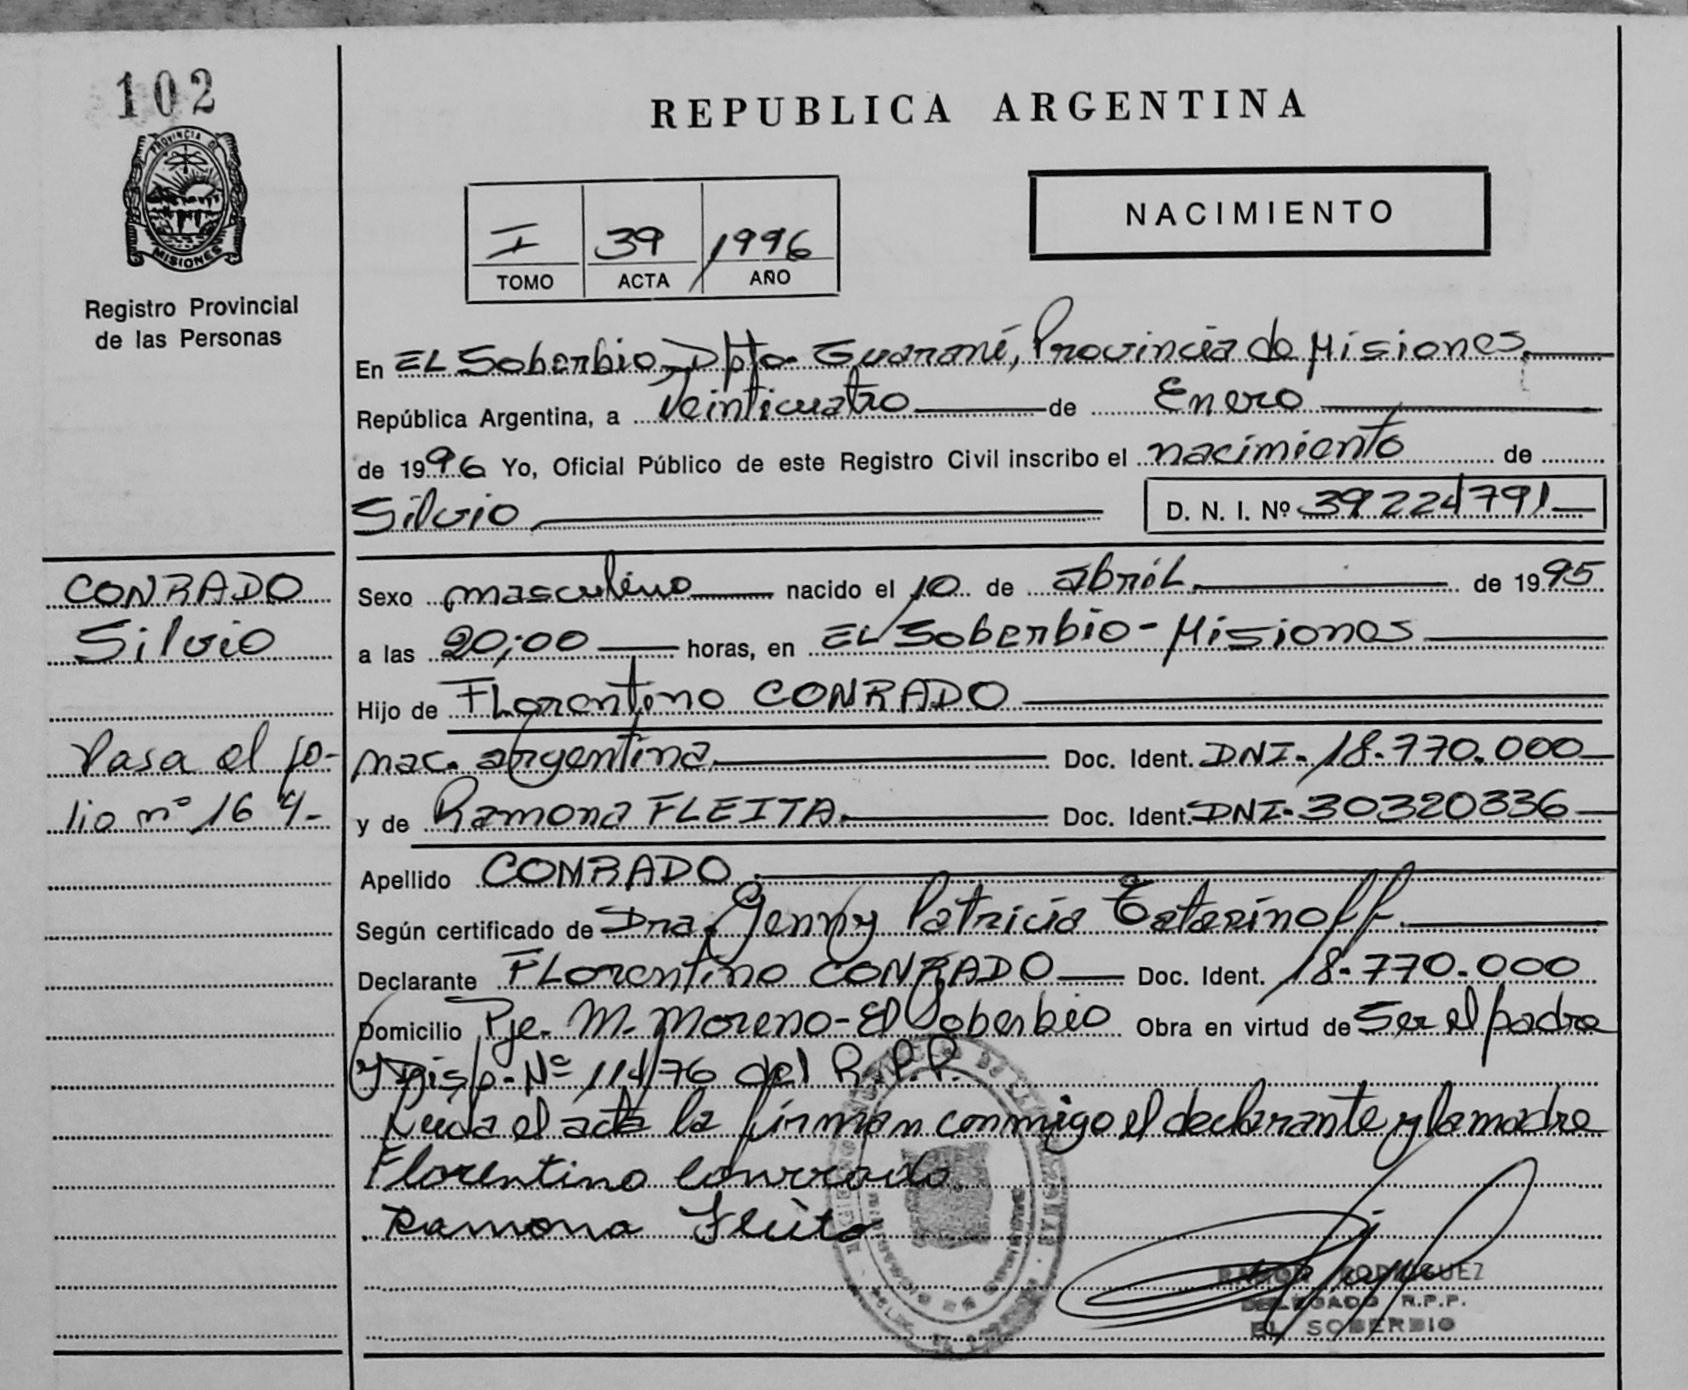 102
PROVINCIA DE
MISIONES
Registro Provincial
de las Personas
REPUBLICA ARGENTINA
I 39 1996
TOMO ACTA AÑO
NACIMIENTO
En EL Soberbio-Dpto- Guaraní, Provincia de Misiones.
República Argentina, a Veinticuatro de Enero
de 1996 Yo, Oficial Público de este Registro Civil inscribo el nacimiento de
Silvio D. N. I. Nº 39224791
CONRADO
Silvio
Pasa al fo-
lio nº 164-
Sexo masculino nacido el 10 de abril de 1995
a las 20;00 horas, en EL Soberbio-Misiones
Hijo de Florentino CONRADO
nac. argentina. Doc. Ident. DNI- 18.770.000
y de Ramona FLEITA. Doc. Ident. DNI-30320336
Apellido CONRADO
Según certificado de Dra. Genny Patricia Tatarinoff.
Declarante FLorentino CONRADO Doc. Ident. 18.770.000
Domicilio Pje. M. Moreno-El Soberbio Obra en virtud de Ser el padre
y Disp. Nº 114/76 del R.P.P.
Leida el acta la firman conmigo el declarante y la madre
Florentino Conrrado
Ramona Fleita
RAMON RODRIGUEZ
DELEGADO R.P.P.
EL SOBERBIO